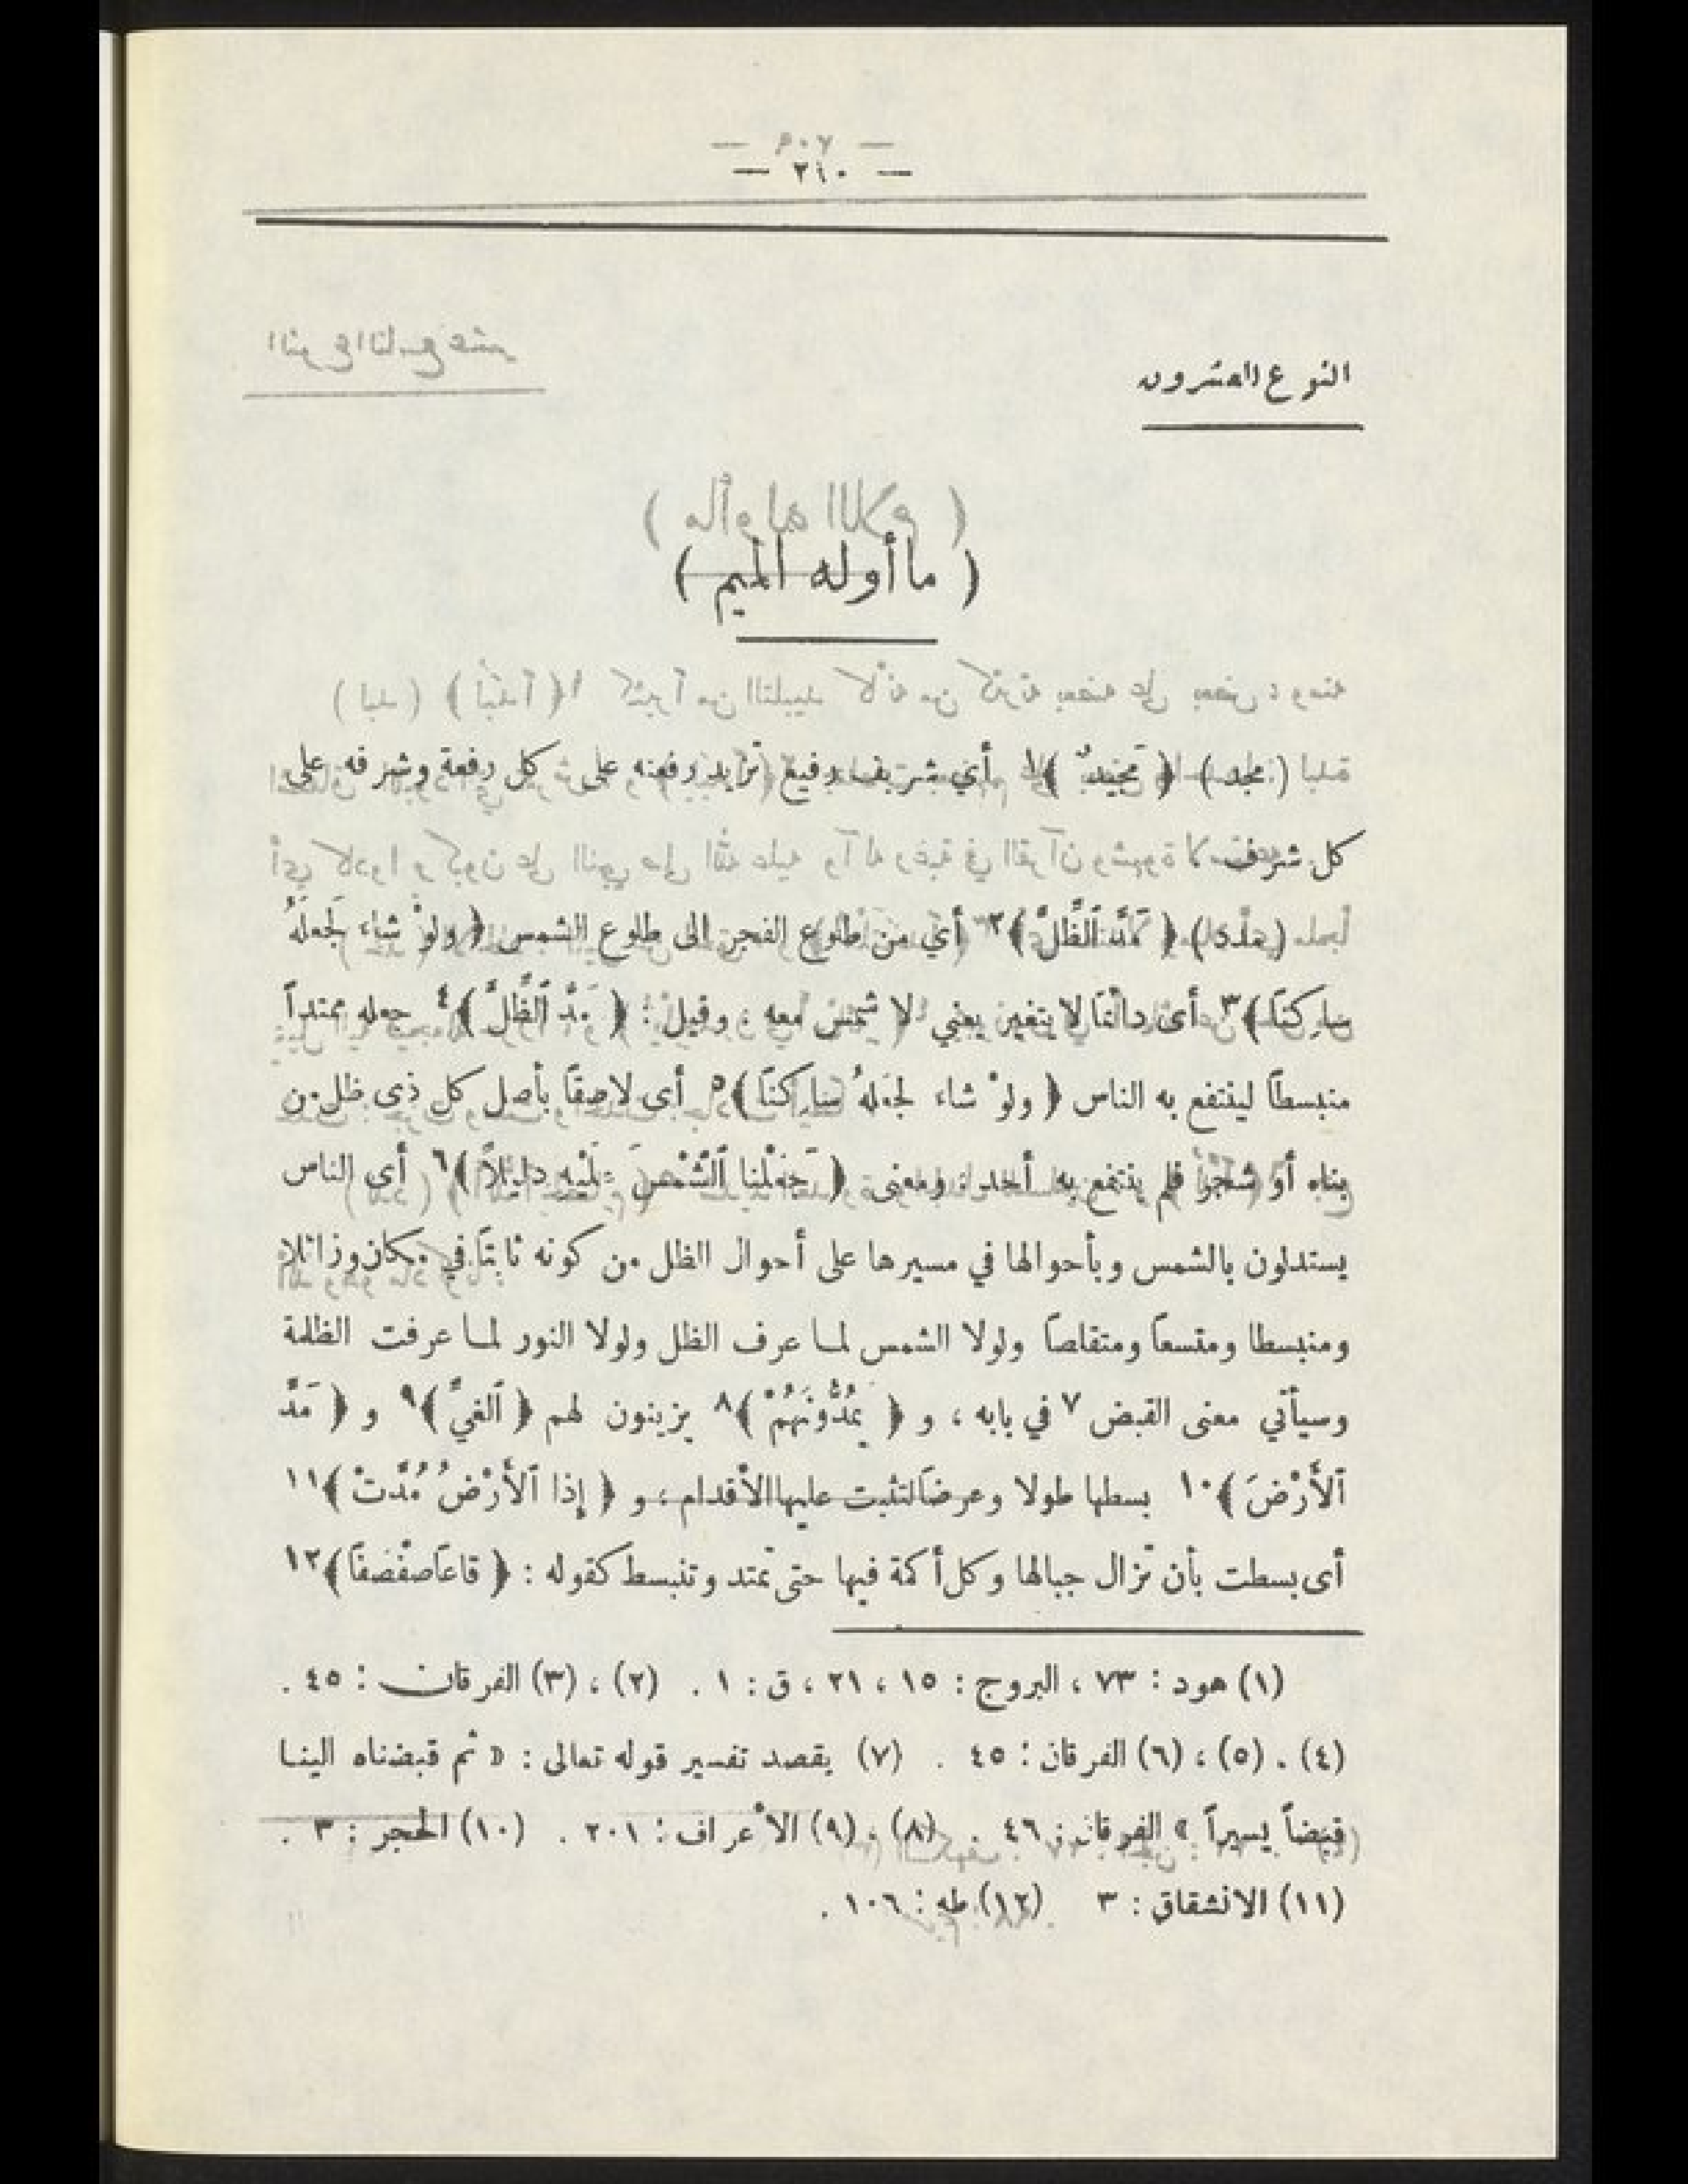 — ٢١٠ —
النوع العشرون
( ما أوله الميم )
( مجد ) ﴿ مَجِيدٌ ﴾١ أي شريف رفيع تزيد رفعته على كل رفعة وشرفه على
كل شرف .
( مدد ) ﴿ مَدَّ ٱلظِّلَّ ﴾٢ أي من طلوع الفجر الى طلوع الشمس ﴿ ولوْ شاء لَجعلَهُ
ساكِنًا ﴾٣ أى دائمًا لا يتغير يعني لا شمس معه ، وقيل : ﴿ مَدَّ ٱلظِّلَّ ﴾٤ جعله ممتداً
منبسطًا لينتفع به الناس ﴿ ولوْ شاء لجَعلهُ ساكِنًا ﴾٥ أى لاصقًا بأصل كل ذى ظل من
بناء أو شجر فلم ينتفع به أحد ، ومعنى ﴿ جَعَلْنا ٱلشَّمْسَ عَلَيْهِ دليلاً ﴾٦ أى الناس
يستدلون بالشمس وبأحوالها في مسيرها على أحوال الظل من كونه ثابتًا في مكان وزائلا
ومنبسطا ومتسعاً ومتقلصاً ولولا الشمس لما عرف الظل ولولا النور لما عرفت الظلمة
وسيأتي معنى القبض ٧ في بابه ، و ﴿ يَمُدُّونَهُمْ ﴾٨ يزينون لهم ﴿ ٱلغيِّ ﴾٩ و ﴿ مَدَّ
ٱلأَرْضَ ﴾١٠ بسطها طولا وعرضًا لتثبت عليها الأقدام ، و ﴿ إِذا ٱلأَرْضُ مُدَّتْ ﴾١١
أى بسطت بأن تزال جبالها وكل أكمة فيها حتى تمتد وتنبسط كقوله : ﴿ قاعًا صفْصَفًا ﴾١٢
(١) هود : ٧٣ ، البروج : ١٥ ، ٢١ ، ق : ١ . (٢) ، (٣) الفرقان : ٤٥ .
(٤) . (٥) ، (٦) الفرقان : ٤٥ . (٧) يقصد تفسير قوله تعالى : « ثم قبضناه الينا
قبضاً يسيراً » الفرقان : ٤٦ . (٨) ، (٩) الأعراف : ٢٠١ . (١٠) الحجر : ٣ .
(١١) الانشقاق : ٣ (١٢) طه : ١٠٦ .